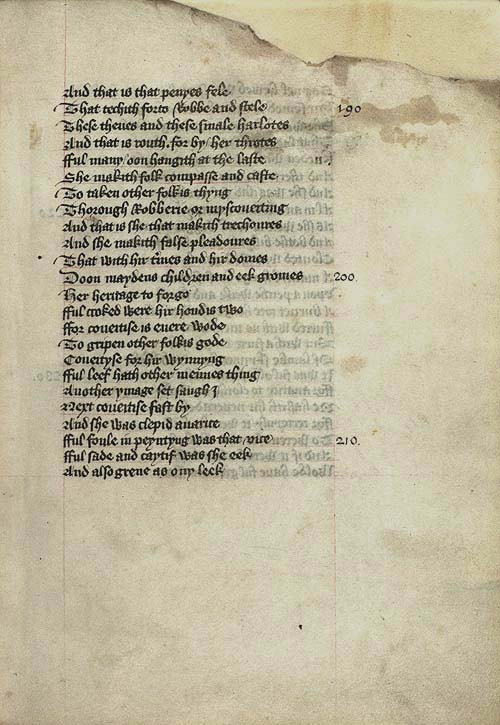 And that is that penyes fele
That techith forto Robbe and stele 190
These theues and these smale harlotes
And that is routh for by her throtes
fful many oon hangith at the laste
She makith folk compasse and caste
To taken other folkis thyng
Thorough Robberie or myscouetiting
And that is she that makith trechoures
And she makith false pleadoures
That with hir and hir domes
Doon maydens children and eek gromes 200.
Her heritage to forgo
fful croked were hir hondis two
ffor coueitise is euere wode
To gripen other folkis gode
Coueityse for hir wynnyng
fful leef hath other mennes thing
Another ymage set saugh I
Next coueitise fast by
And she was clepid auarice
fful foule in peyntyng was that vice 210.
fful sade and caytif was she eek
And also grene as ony leek